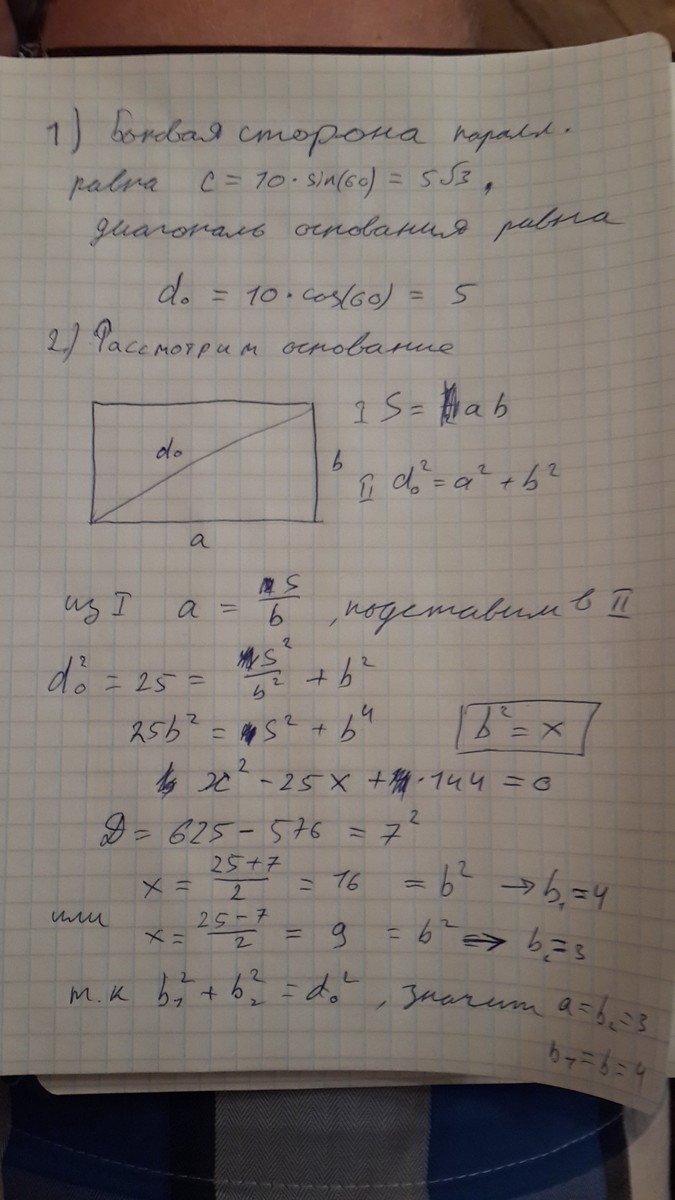 1) Боковая сторона паралл.
равна c = 10·sin(60) = 5√3,
диагональ основания равна
d₀ = 10·cos(60) = 5
2.) Рассмотрим основание
I S = ab
d₀
b
II d₀² = a² + b²
a
из I a = S/b , подставим в II
d₀² = 25 = S²/b² + b²
25b² = S² + b⁴
b² = x
x² - 25x + 144 = 0
D = 625 - 576 = 7²
x = (25+7)/2 = 16 = b² → b₁ = 4
или
x = (25-7)/2 = 9 = b² ⇒ b₂ = 3
т.к b₁² + b₂² = d₀², значит a = b₂ = 3
b₁ = b = 4